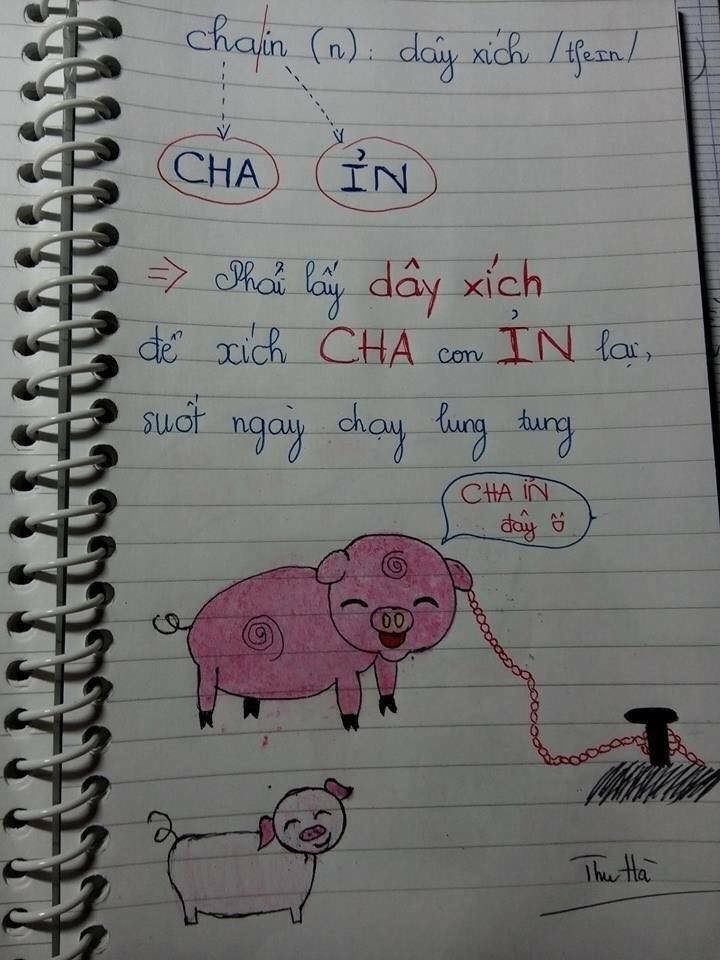 cha/in (n): dây xích /tʃeɪn/
CHA ỈN
=> Phải lấy dây xích
để xích CHA con ỈN lại,
suốt ngày chạy lung tung
CHA ỈN
đây
Thu Hà